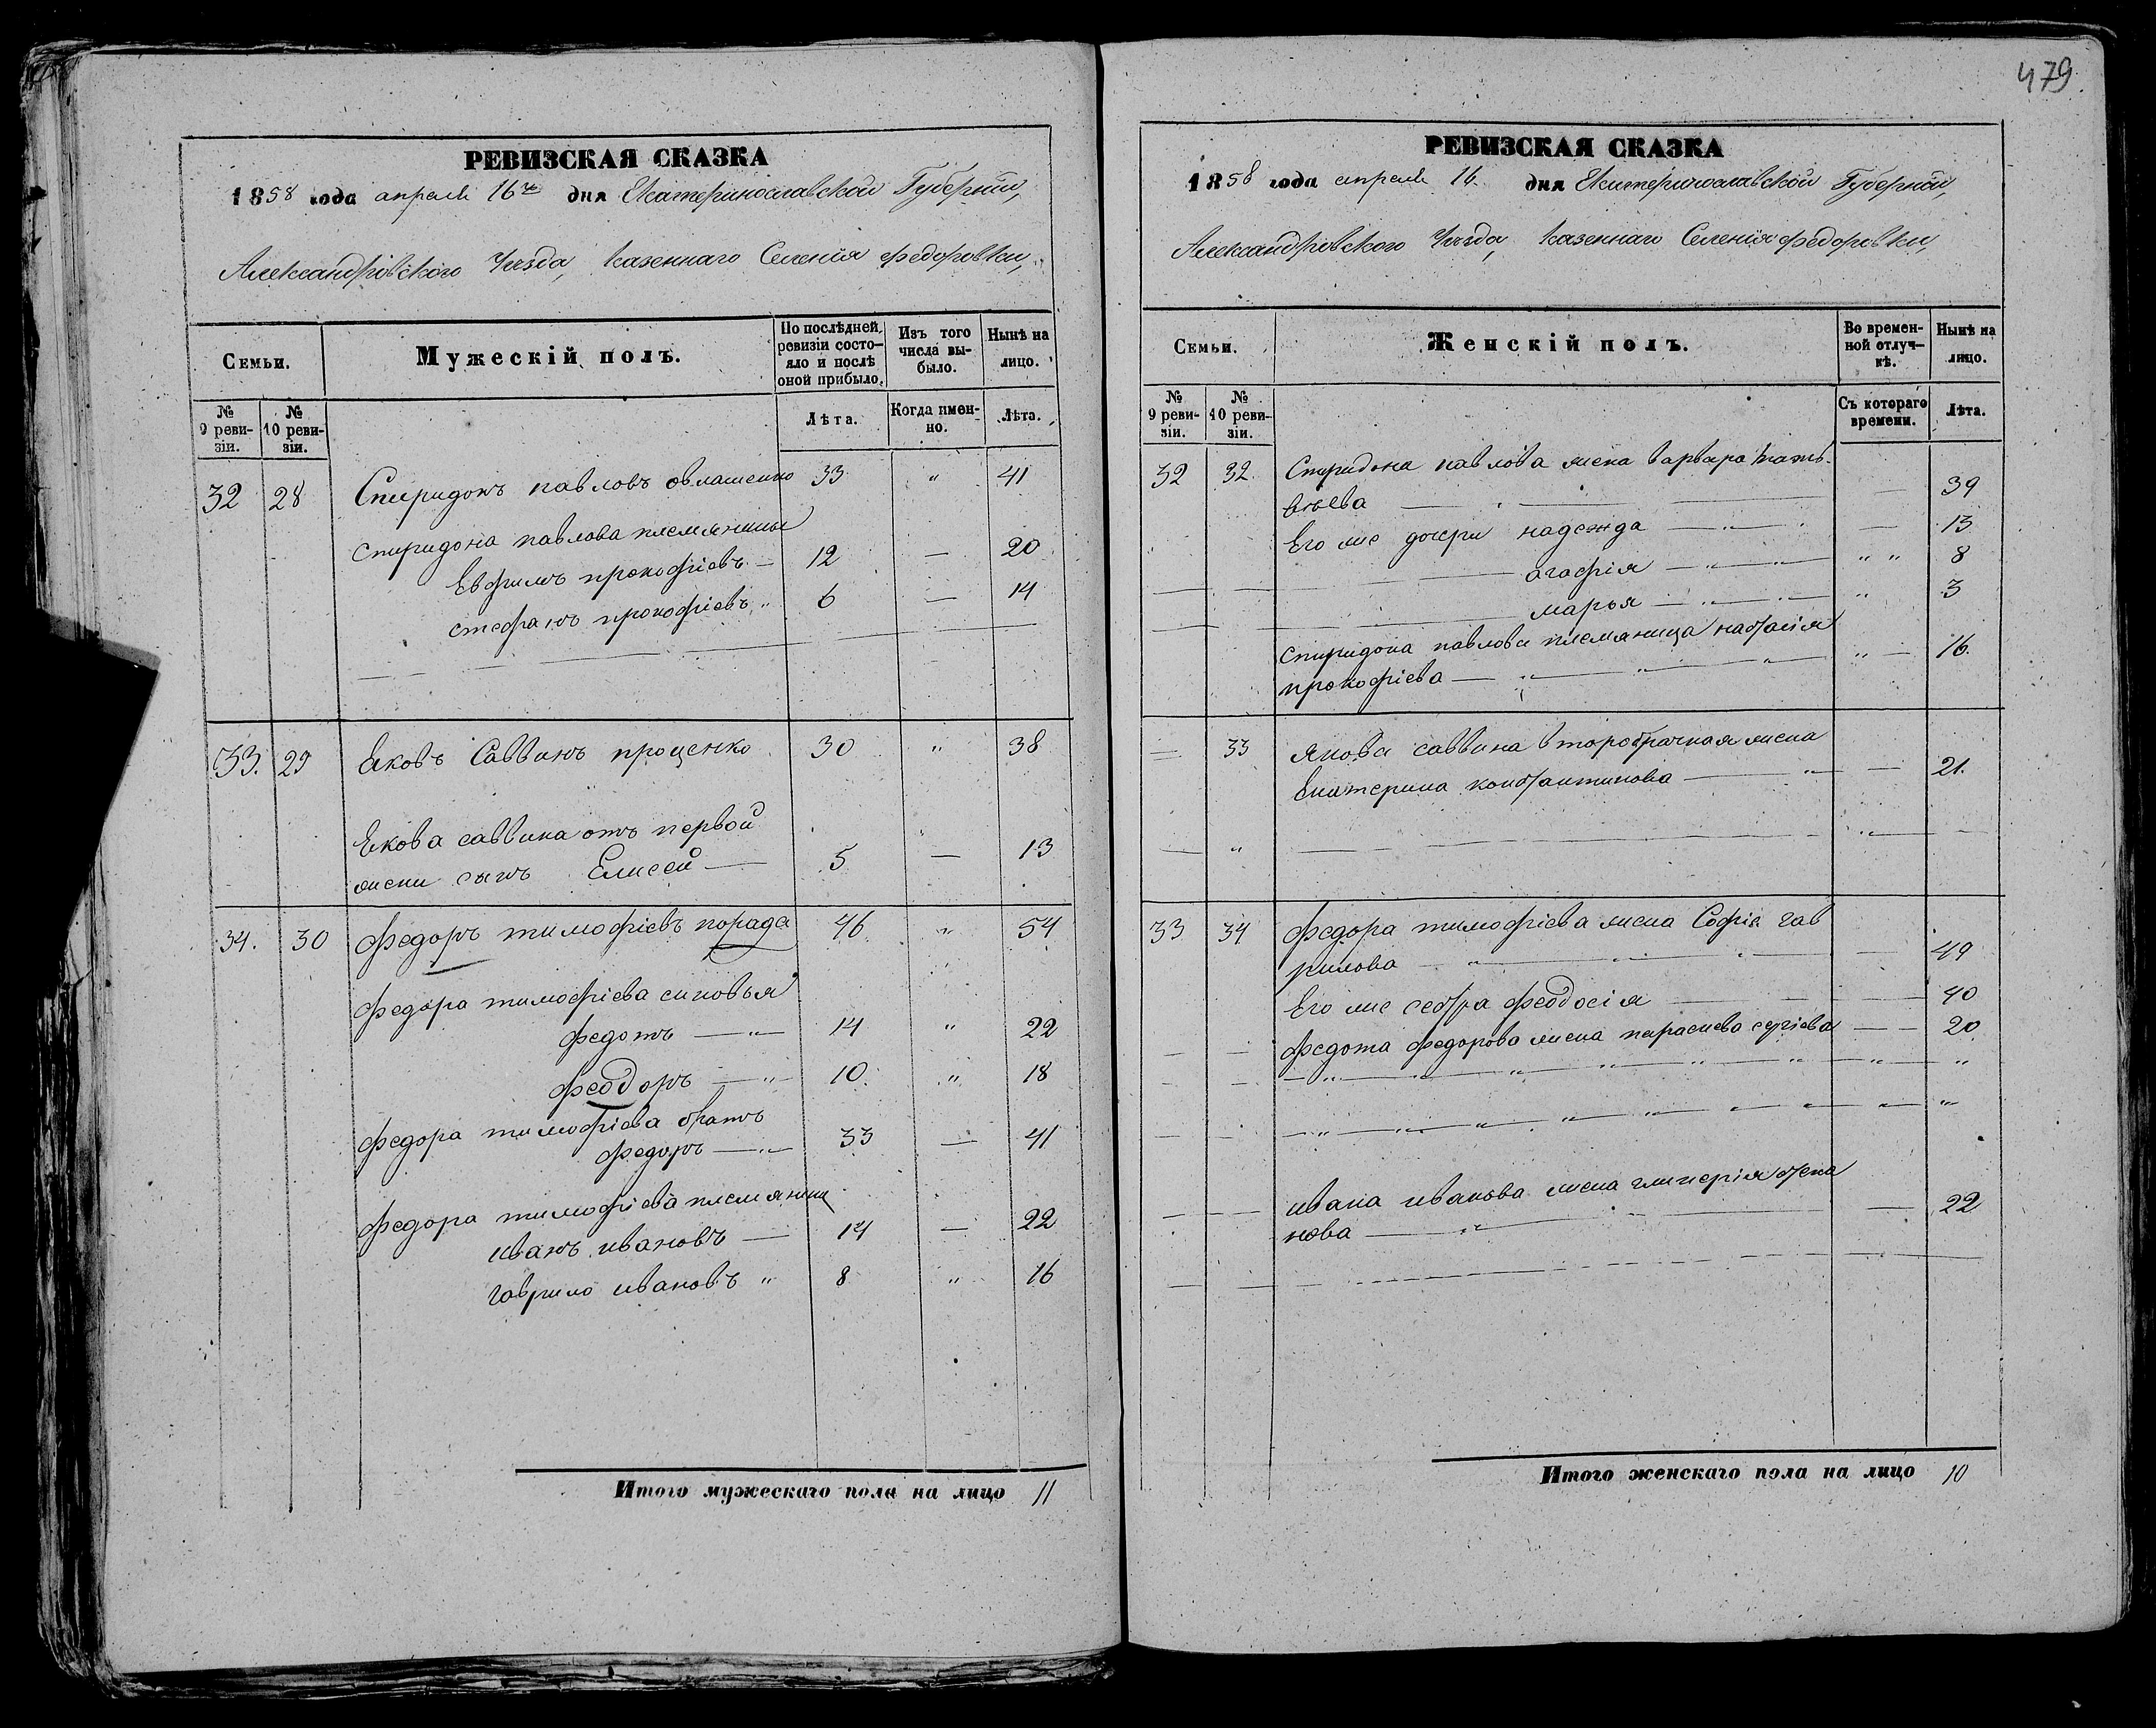 479
РЕВИЗСКАЯ СКАЗКА
1858 года апреля 16го дня Екатеринославской Губерніи,
Александрівского Уѣзда, казеннаго Селенія федоровки,
Семьи.
Мужескій полъ.
По послѣдней ревизіи состояло и послѣ оной прибыло.
Изъ того числа выбыло.
Нынѣ на лицо.
№ 9 ревизіи.
№ 10 ревизіи.
Лѣта.
Когда именно.
Лѣта.
32 28 Спиридонъ павловъ 33 " 41
Спиридона павлова племянники
Евфимъ прокофіевъ — 12 — 20
стефанъ прокофіевъ " 6 — 14
33. 29 Яковъ Саввинъ проценко 30 " 38
Якова саввина отъ первой
жени сынъ Елисей — 5 — 13
34. 30 федоръ тимофіевъ порада 46 " 54
федора тимофіева синовья
федотъ — " — 14 " 22
феодоръ — " — 10. " 18
федора тимофіева братъ
федоръ — " — 33 — 41
федора тимофіева племянники
иванъ ивановъ — 14 — 22
гаврило ивановъ " 8 " 16
Итого мужескаго пола на лицо 11
РЕВИЗСКАЯ СКАЗКА
1858 года апреля 16. дня Екатеринославской Губерніи,
Александрівского Уѣзда, казеннаго Селенія федоровки,
Семьи.
Женскій полъ.
Во временной отлучкѣ.
Нынѣ на лицо.
№ 9 ревизіи.
№ 10 ревизіи.
Съ котораго времени.
Лѣта.
32 32. Спиридона павлова жена варвара матвѣева — 39
Его же дочери надежда — " — 13
агафія — " — " " " 8
марья — " — " — " 3
Спиридона павлова племяница настасія
прокофіева — " — " — 16.
— 33 Якова саввина второбрачная жена
Екатерина константинова — " — 21.
33 34 федора тимофіева жена Софія гав
рилова — " — 49
Его же сестра феодосія — 40
федота федорова жена параскева сергіева — 20
ивана иванова жена гликерія степа
нова — " — 22
Итого женскаго пола на лицо 10